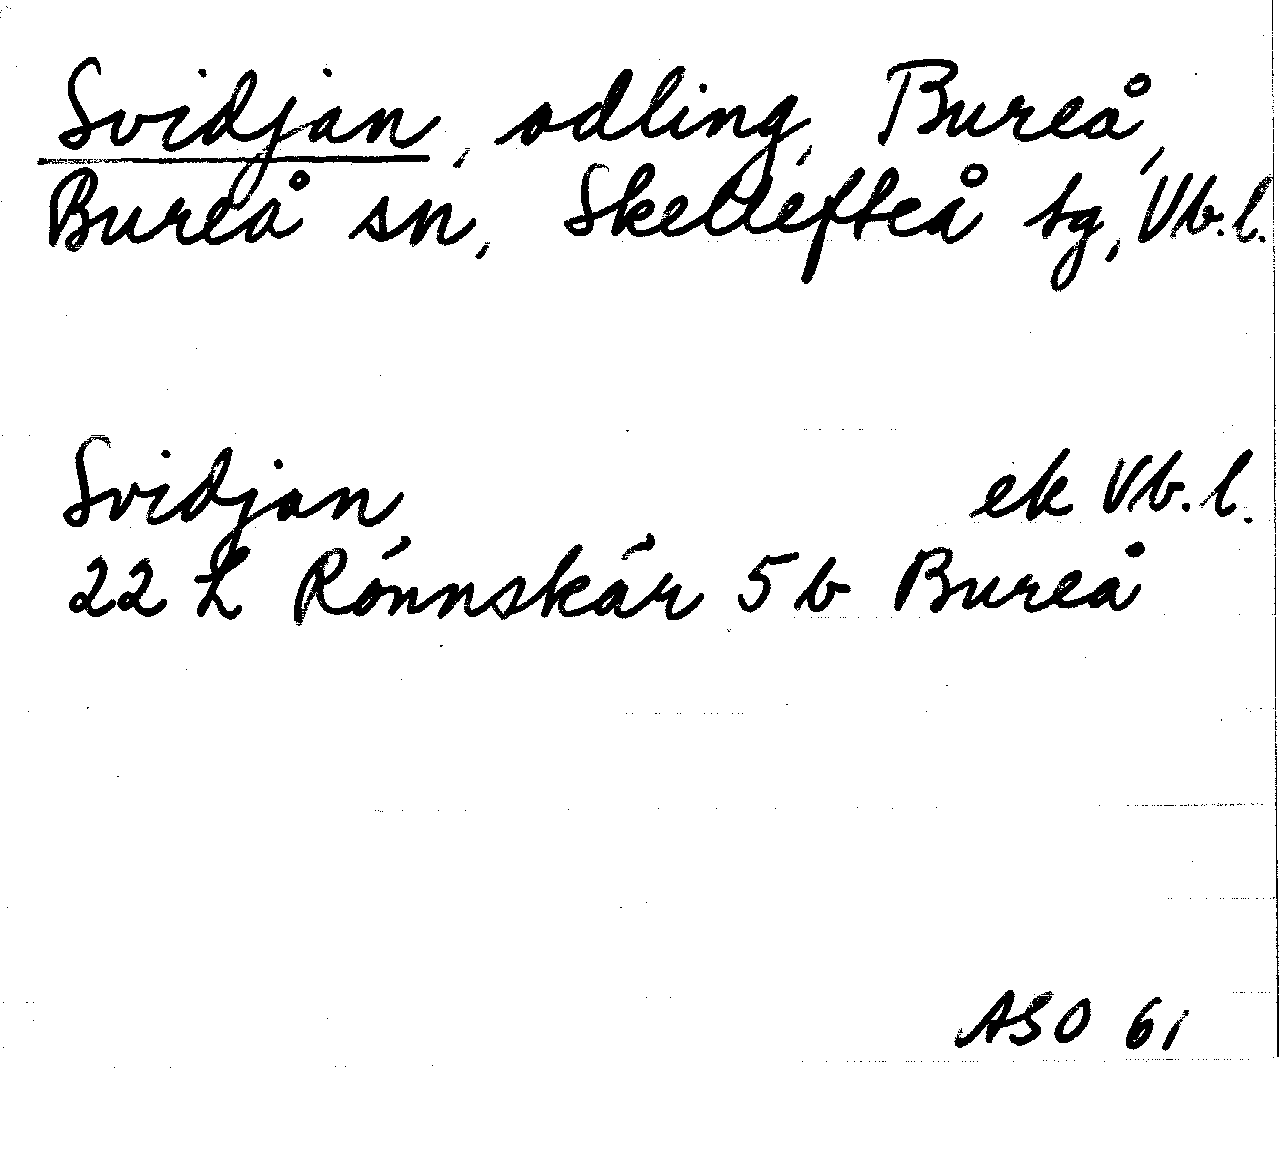 Svidjan, odling, Bureå,
Bureå sn, Skellefteå tg, Vb.l.
Svidjan ek Vb.l.
22 L Rönnskär 5 b Bureå
ASO 61